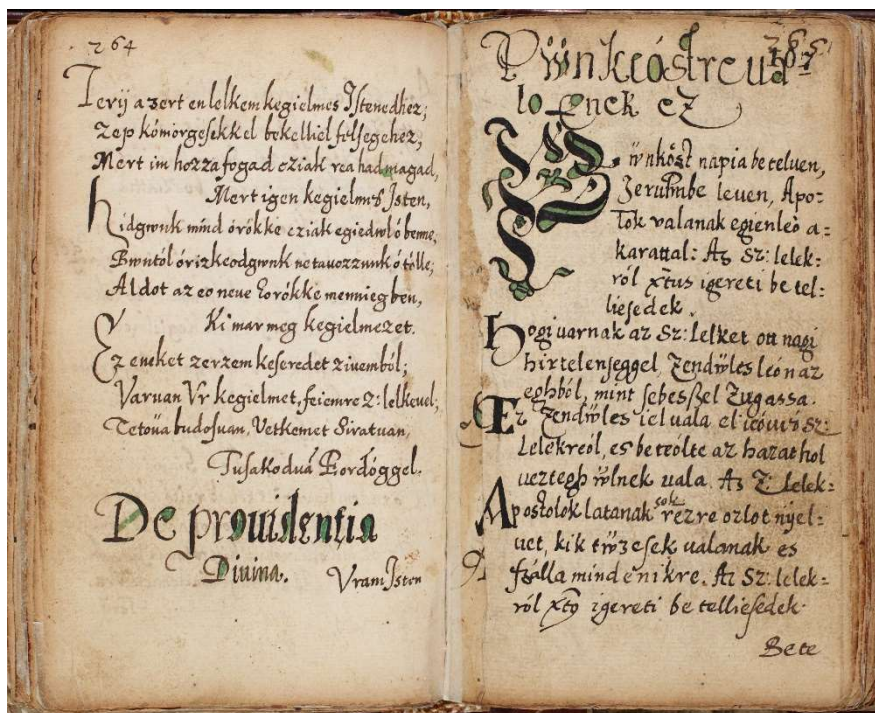 264
Terÿ azert en lelkem kegielmes Istenedhez,
Zep kőniőrgesekkel bekelliel felsegehez,
Mert im hozza fogad cziak rea had magad,
Mert igen kegielmes Isten,
hidgiwnk mind őrőkke cziak egiedwl ő benne,
Bwntől őrizkeodgiwnk ne tavozzunk ő tőlle,
Aldot az eo neve őrőkke menniegben,
Ki mar meg kegielmezet.
Ez eneket zerzem keseredet zivemből,
Varuan Vr kegielmet, feiemre Z: lelkeuel,
Tetoua budosuan, Vetkemet Siratuan,
Tusakoduā Eordőggel.
De prouidentia
Diuina. Vram Isten
265
Pẅnkeóstreud
lo Enek ez
Pẅnkőst napia be teluen,
Jerusalembe leuen, Apo=
stok valanak egienleo a=
karattal: Az Sz: lelek=
ről xt̄us igereti be tel=
liesedek.
Hogi varnak az Sz: Lelket ott nagi
hirtelenseggel, Zendẅles leőn az
eghből, mint sebes szel Zugassa.
Ez Zendẅles iel uala el ieőuő Sz:
Lelekreől, es be teőlte az hazat hol
ueztegh ẅlnek uala. Az Z: lelek=
Apostolok latanak sok rezre ozlot nyel=
uet, kik tẅzesek valanak es
szalla mindenikre. Az Sz: lelek=
ről xt̄9 igereti be telliesedek.
Bete